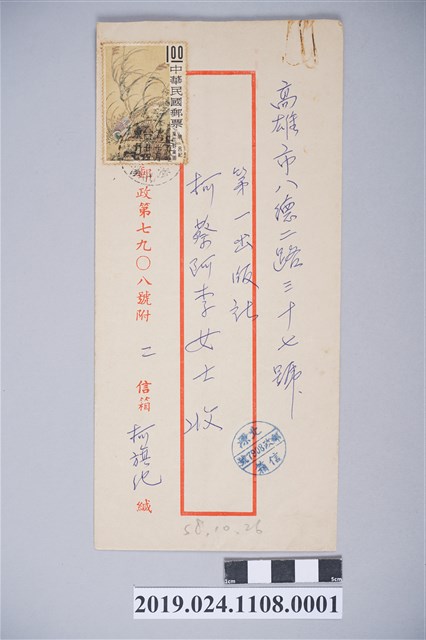 高雄市八德二路三十七號
第一出版社
柯蔡阿李女士收
1.00
中華民國郵票
郵政第七九〇八號附二信箱
柯旗化緘
郵政7908號
信箱
58.10.26
1cm
5cm
2019.024.1108.0001